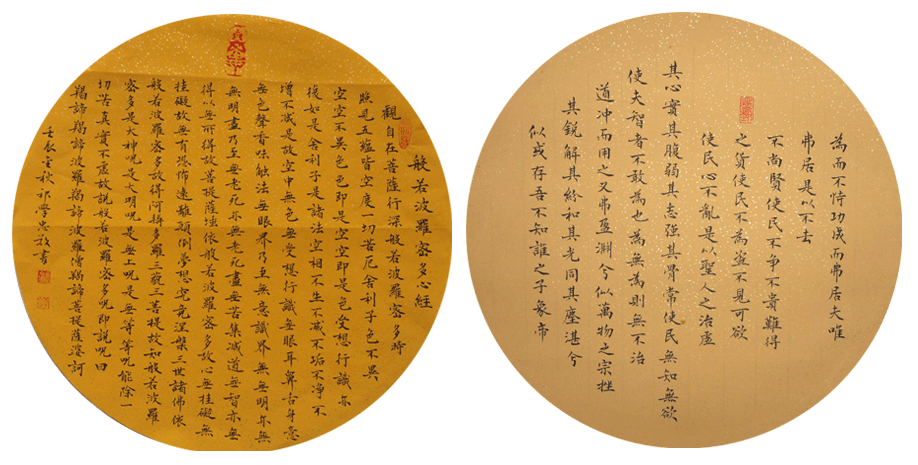 般若波羅密多心經
觀自在菩薩行深般若波羅密多時
照見五蘊皆空度一切苦厄舍利子色不異
空空不異色色即是空空即是色受想行識亦
復如是舍利子是諸法空相不生不滅不垢不淨不
增不減是故空中無色無受想行識無眼耳鼻舌身意
無色聲香味觸法無眼界乃至無意識界無無明亦無
無明盡乃至無老死亦無老死盡無苦集滅道無智亦無
得以無所得故菩提薩埵依般若波羅密多故心無挂礙無
挂礙故無有恐怖遠離顛倒夢想究竟涅槃三世諸佛依
般若波羅密多故得阿耨多羅三藐三菩提故知般若波羅
密多是大神呪是大明呪是無上呪是無等等呪能除一
切苦真實不虛故說般若波羅密多呪即說呪曰
羯諦羯諦波羅羯諦波羅僧羯諦菩提薩婆訶
壬辰之秋祁學忠敬書
為而不恃功成而弗居夫唯
弗居是以不去
不尚賢使民不爭不貴難得
之貨使民不為盜不見可欲
使民心不亂是以聖人之治虛
其心實其腹弱其志強其骨常使民無知無欲
使夫智者不敢為也為無為則無不治
道沖而用之又弗盈淵兮似萬物之宗挫
其銳解其紛和其光同其塵湛兮
似或存吾不知誰之子象帝